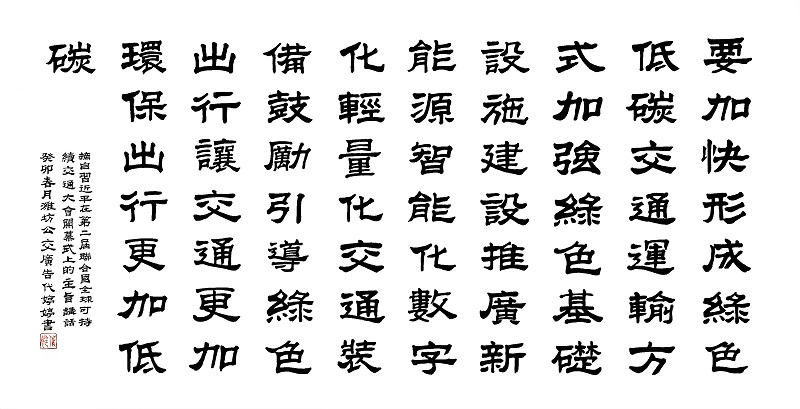 要加快形成綠色
低碳交通運輸方
式加強綠色基礎
設施建設推廣新
能源智能化數字
化輕量化交通裝
備鼓勵引導綠色
出行讓交通更加
環保出行更加低
碳
摘自習近平在第二屆聯合國全球可持
續交通大會開幕式上的主旨講話
癸卯春月濰坊公交廣告代婷婷書